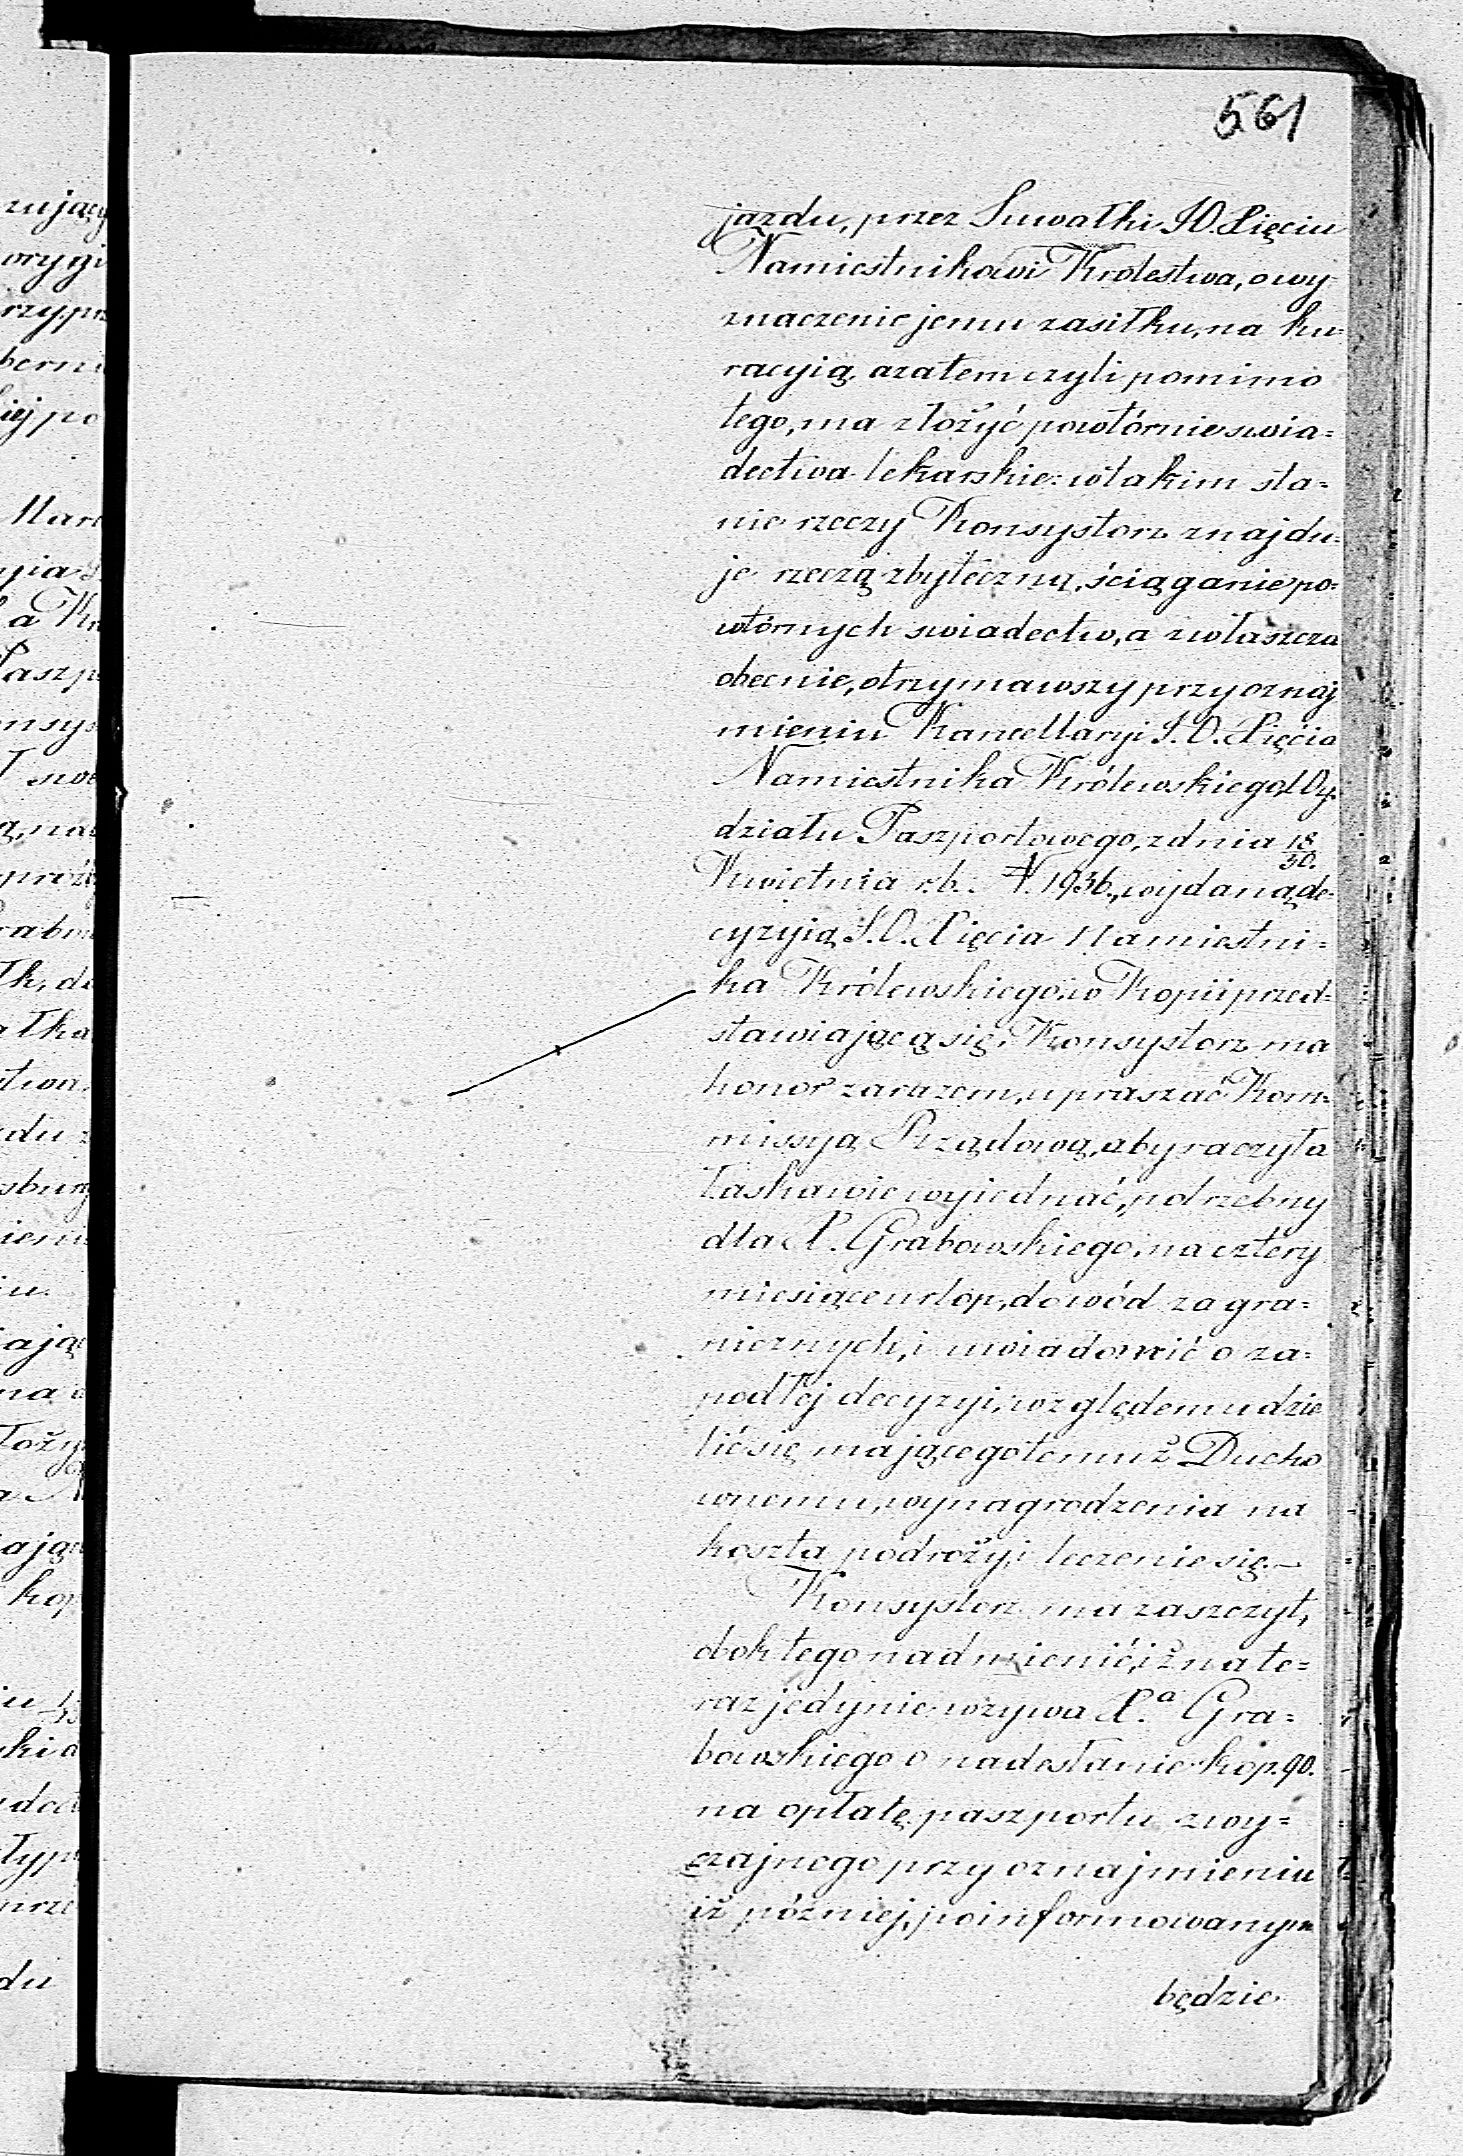 561
jazdu, przez Suwałki J.O. Xięciu
Namiestnikowi Królestwa, o wy-
znaczenie jemu zasiłku, na ku=
racyią, azatem czyli pomimo
tego, ma złożyć powtórnie swia=
dectwa lekarskie: w takim sta=
nie rzeczy Konsystorz znajdu=
je rzeczą zbyteczną, ściąganie po=
wtórnych swiadectw, a zwłaszcza
obecnie, otrzymawszy przy oznaj
mieniu Kancellaryi J.O. Xięcia
Namiestnika Królewskiego, Wy-
działu Paszportowego, z dnia 18/30.
Kwietnia r.b. N. 1936., wydaną de-
cyzyią J.O. Xięcia Namiestni=
ka Królewskiego, w Kopii przed=
stawiającą się, Konsystorz ma
honor zarazem, upraszać Kom=
missyą Rządową, aby raczyła
łaskawie wyjednać, potrzebny
dla X. Grabowskiego, na cztery
miesiące urlop, dowód zagra=
nicznych, i uwiadomić o za=
padłej decyzyi, względem udzie
lić się mającego temuż Ducho
wnemu, wynagrodzenia na
koszta podroży, i leczenie się.—
Konsystorz ma zaszczyt,
obok tego nadmienić, iż na te=
raz jedynie wzywa X.a Gra=
bowskiego o nadesłanie kop. 90.
na opłatę paszportu zwy=
czajnego przy oznajmieniu
iż później, poinformowanym
będzie